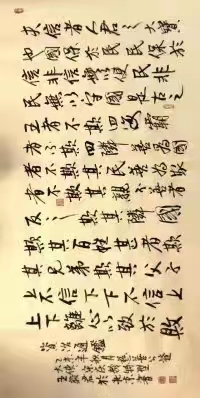 夫信者人君之大寶
也國保於民民保於
信非信無以使民非
民無以守國是古之
王者不欺四海霸
者不欺四隣善為國
者不欺其民善為家
者不欺其親不善者
反之欺其隣國
欺其百姓甚者欺
其兄弟欺其父子
上不信下下不信上
上下離心以致於敗
資治通鑑
於北京書